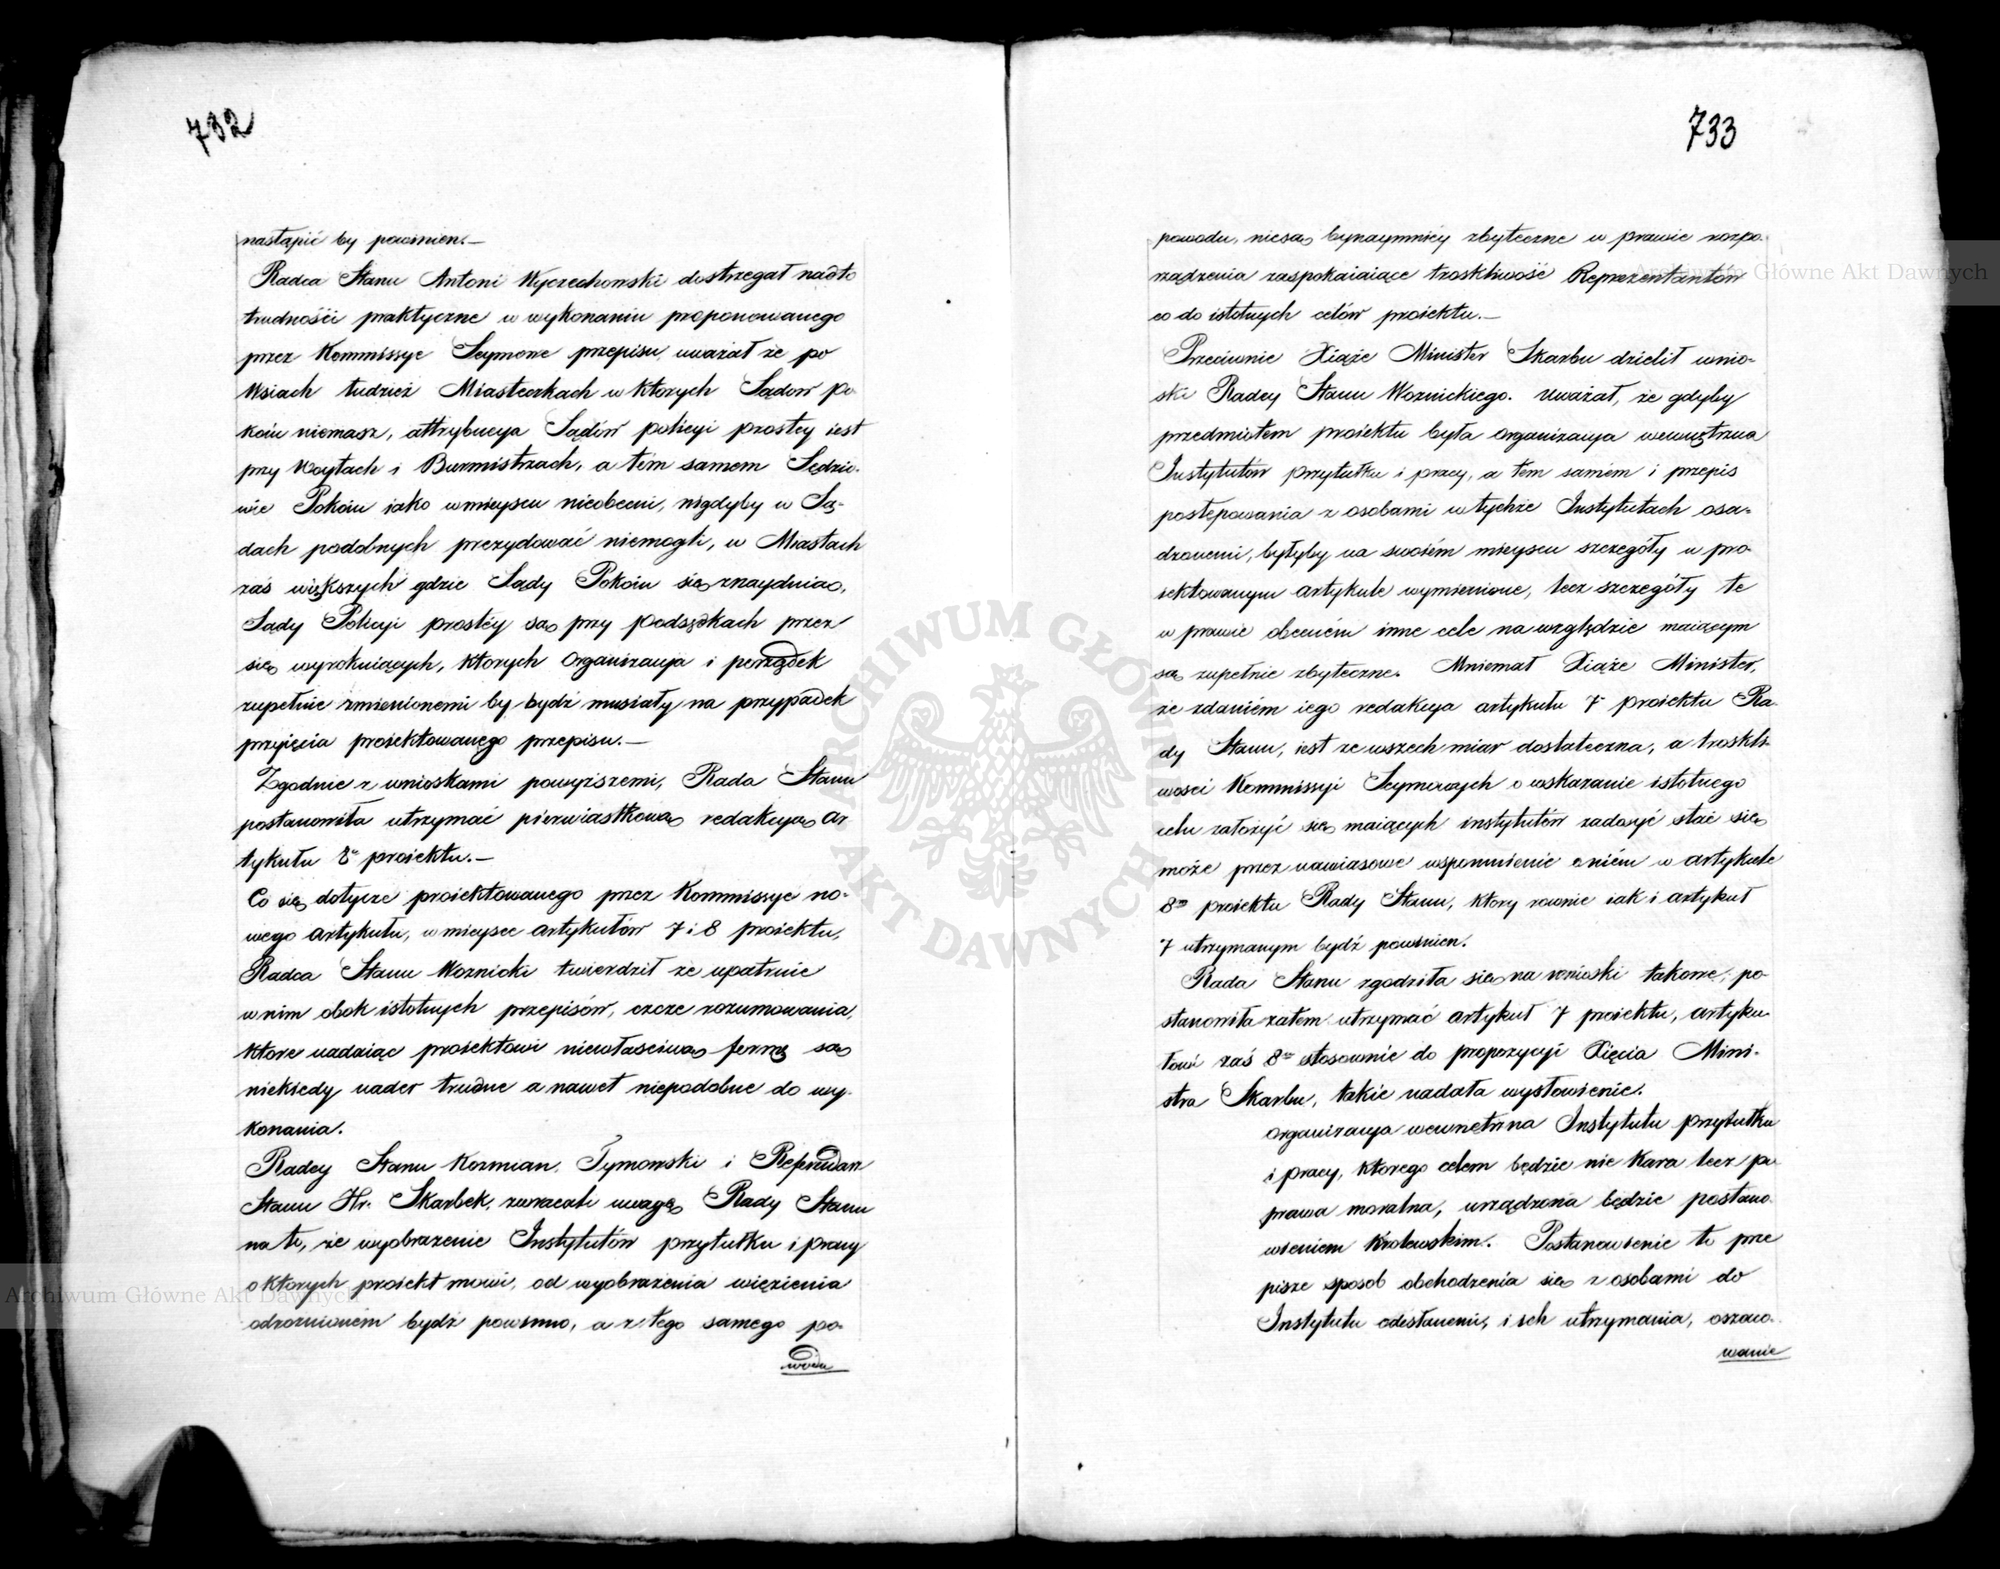 732
nastąpić by powinien.—
Radca Stanu Antoni Wyczechowski dostrzegał nadto
trudności praktyczne w wykonaniu proponowanego
przez Kommissye Seymowe przepisu, uważał że po
Wsiach tudzież Miasteczkach w których Sądów Po
koiu niemasz, attrybucya Sądów policyi prostey iest
przy Woytach i Burmistrzach, a tém samem Sędzio-
wie Pokoiu iako w mieyscu nieobecni, nigdyby w Są-
dach podobnych prezydować niemogli, w Miastach
zaś większych gdzie Sądy Pokoiu się znayduią,
Sądy Policyi prostéy są przy Podsędkach przez
się wyrokuiących, których Organizacyia i porządek
zupełnie zmienionemi by bydź musiały na przypadek
przyięcia proiektowanego przepisu.—
Zgodnie z wnioskami powyższemi, Rada Stanu
postanowiła utrzymać pierwiastkową redakcyą Ar
tykułu proiektu.—
Co się dotycze proiektowanego przez Kommissye no-
wego artykułu, w mieysce artykułów 7 i 8 proiektu,
Radca Stanu Woznicki twierdził że upatruie
w nim obok istotnych przepisów, czcze rozumowania,
które nadaiąc proiektowi niewłaściwą formę są
niekiedy nader trudne a nawet niepodobne do wy-
konania.
Radcy Stanu Kozmian, Tymowski i Referendarz
Stanu Hr. Skarbek, zwracali uwagę Rady Stanu
na to, że wyobrażenie Instytutów przytułku i pracy
o których proiekt mowi, od wyobrażenia więzienia
odrożnioném bydź powinno, a z tego samego po-
wodu
733
powodu, niesą bynaymniéy zbyteczne w prawie rozpo-
rządzenia zaspokaiaiące troskliwość Reprezentantów
co do istotnych celów proiektu.—
Przeciwnie Xiąże Minister Skarbu dzielił wnio-
ski Radcy Stanu Woznickiego. Uważał, że gdyby
przedmiotem proiektu była Organizacya wewnętrzna
Instytutów przytułku i pracy, a tem samem i przepis
postępowania z osobami w tychże Instytutach osa-
dzonemi, byłyby na swoiém mieyscu szczegóły w pro-
iektowanym artykule wymienione, lecz szczegóły te
w prawie obecném inne cele na względzie maiącym
są zupełnie zbyteczne. Mniemał Xiąże Minister,
że zdaniém iego redakcya artykułu 7 proiektu Ra-
dy Stanu, iest ze wszech miar dostateczna, a troskli-
wości Kommissyi Seymowych o wskazanie istotnego
celu założyć się maiących instytutów zadosyć stać się
może przez nawiasowe wspomnienie o niém w artykule
8m proiektu Rady Stanu, który rownie iak i artykuł
7 utrzymanym bydź powinien.
Rada Stanu zgodziła się na wnioski takowe; po-
stanowiła zatem utrzymać artykuł 7 proiektu, artyku
łowi zaś 8 stosownie do propozycyi Xięcia Mini-
stra Skarbu, takie nadała wysłowienie.
Organizacyja wewnętrzna Instytutu przytułku
i pracy, którego celem będzie nie kara lecz po
prawa moralna, urządzona będzie postano-
wieniem Krolewskim. Postanowienie to prze
pisze sposob obchodzenia się z osobami do
Instytutu odesłanemi, i ich utrzymania, oszaco-
wanie
Archiwum Główne Akt Dawnych
Archiwum Główne Akt Dawnych
ARCHIWUM GŁÓWNE AKT DAWNYCH